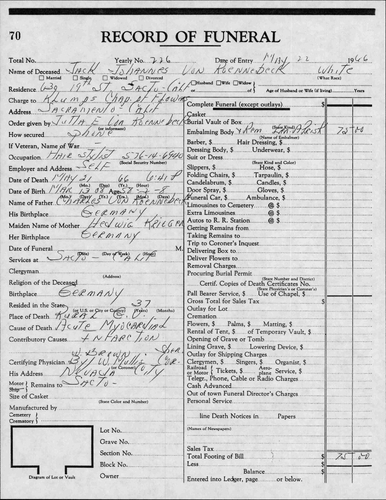 70
RECORD OF FUNERAL
Total No. Yearly No. 226 Date of Entry May 22 1966
Name of Deceased Jack Johannes Von Roennebeck White
Married Single Widowed Divorced (What Race)
Residence 19th St. Sacto- Calif
Husband Wife Widow of Age of Husband or Wife (if living)
Charge to Klumpp's Chap of Flowers
Address Sacramento Calif
Order given by Jutta E. Von Roennebeck
(or informant)
How secured Phone
If Veteran, Name of War -
Occupation Hair Stylist
(Social Security Number)
Employer and Address Self
Date of Death May 21 66 6:45 P
Date of Birth Mar 13 08 Age 58-2-8
Name of Father Charles Von Roennebeck
His Birthplace Germany
Maiden Name of Mother Hedwig
Her Birthplace Germany
Date of Funeral M
Services at Sacto- Calif
Clergyman
(Address)
Religion of the Deceased
Birthplace Germany
Resided in the State 37
(or U.S. or City or County)
Place of Death Rural
Cause of Death Acute Myocardial
Contributory Causes Infarction
W. Brown Sher
Certifying Physician By W. Cor-
His Address Nevada City
Motor Ship Remains to Sacto-
Size of Casket
(State Color and Number)
Manufactured by
Cemetery
Crematory
Lot No.
Grave No.
Section No.
Block No.
Diagram of Lot or Vault
Owner
Complete Funeral (except outlays) $
Casket
Burial Vault of Box
(State Kind)
Embalming Body 75 00
(Name of Embalmer)
Barber, $ Hair Dressing, $
Dressing Body, $ Underwear, $
Suit or Dress
(State Kind and Color)
Slippers, $ Hose, $
Folding Chairs, $ Tarpaulin, $
Candelabrum, $ Candles, $
Door Spray, $ Gloves, $
Funeral Car, $ Ambulance, $
Limousines to Cemetery @ $
Extra Limousines @ $
Autos to R. R. Station @ $
Getting Remains from
Taking Remains to
Trip to Coroner's Inquest
Delivering Box to
Deliver Flowers to
Removal Charges
Procuring Burial Permit
(State Number and District)
Certif. Copies of Death Certificate No.
(State Physician's or Coroner's)
Pall Bearer Service, $ Use of Chapel, $
Gross Total for Sales Tax $
Outlay for Lot
Cremation
Flowers, $ Palms, $ Matting, $
Rental of Tent, $ of Temporary Vault, $
Opening of Grave or Tomb
Lining Grave, $ Lowering Device, $
Outlay for Shipping Charges
Clergymen, $ Singers, $ Organist, $
Railroad or Motor Tickets, $ Aeroplane Service, $
Telegr., Phone, Cable or Radio Charges
Cash Advanced
Out of town Funeral Director's Charges
Personal Service
line Death Notices in Papers
(Names of Newspapers)
Sales Tax
Total Footing of Bill $ 75 00
Less $
Balance $
Entered into Ledger, page or below.